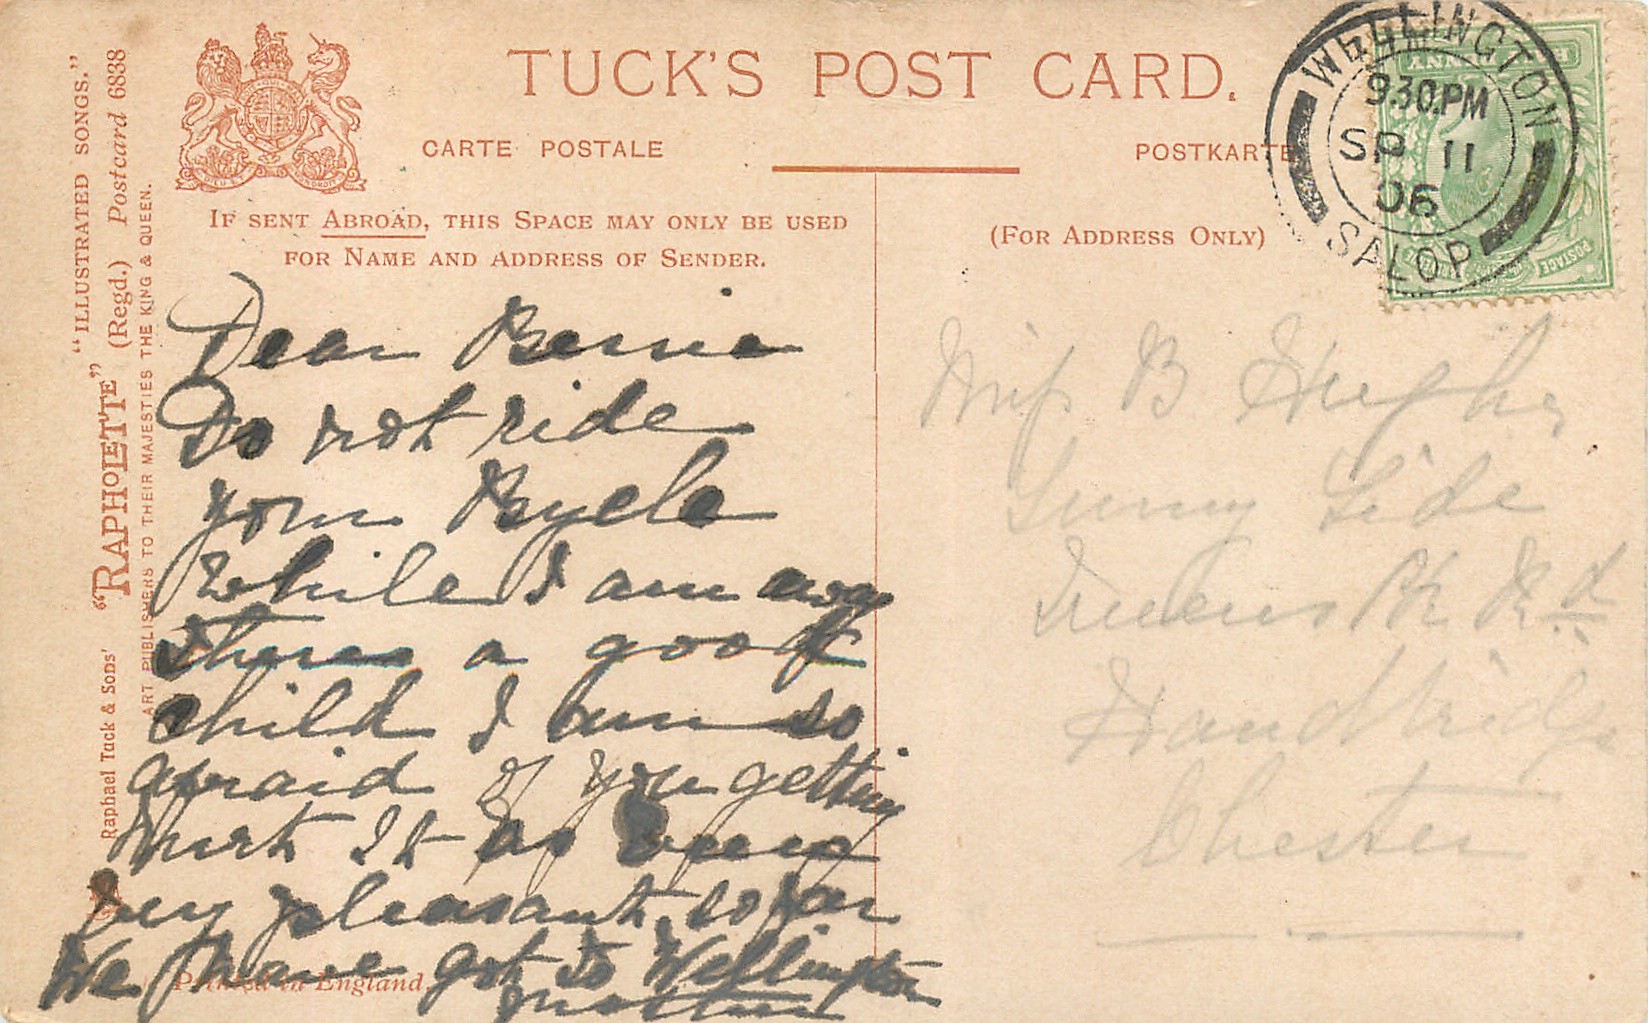 TUCK'S POST CARD.
CARTE POSTALE
POSTKARTE
IF SENT ABROAD, THIS SPACE MAY ONLY BE USED
FOR NAME AND ADDRESS OF SENDER.
(FOR ADDRESS ONLY)
WELLINGTON
9.30.PM
SP 11
06
SALOP
HALFPENNY
POSTAGE
Raphael Tuck & Sons' "RAPHOLETTE" "ILLUSTRATED SONGS."
(Regd.) Postcard 6838
ART PUBLISHERS TO THEIR MAJESTIES THE KING & QUEEN.
Dear Bernie
Do not ride
your Bycle
While I am away
theres a good
child I am so
afraid of you getting
hurt It as been
very pleasant so far
We have got to Wellington
Mother
Printed in England.
Miss B Hughes
Sunny Side
Queens Pk Rd
Handbridge
Chester